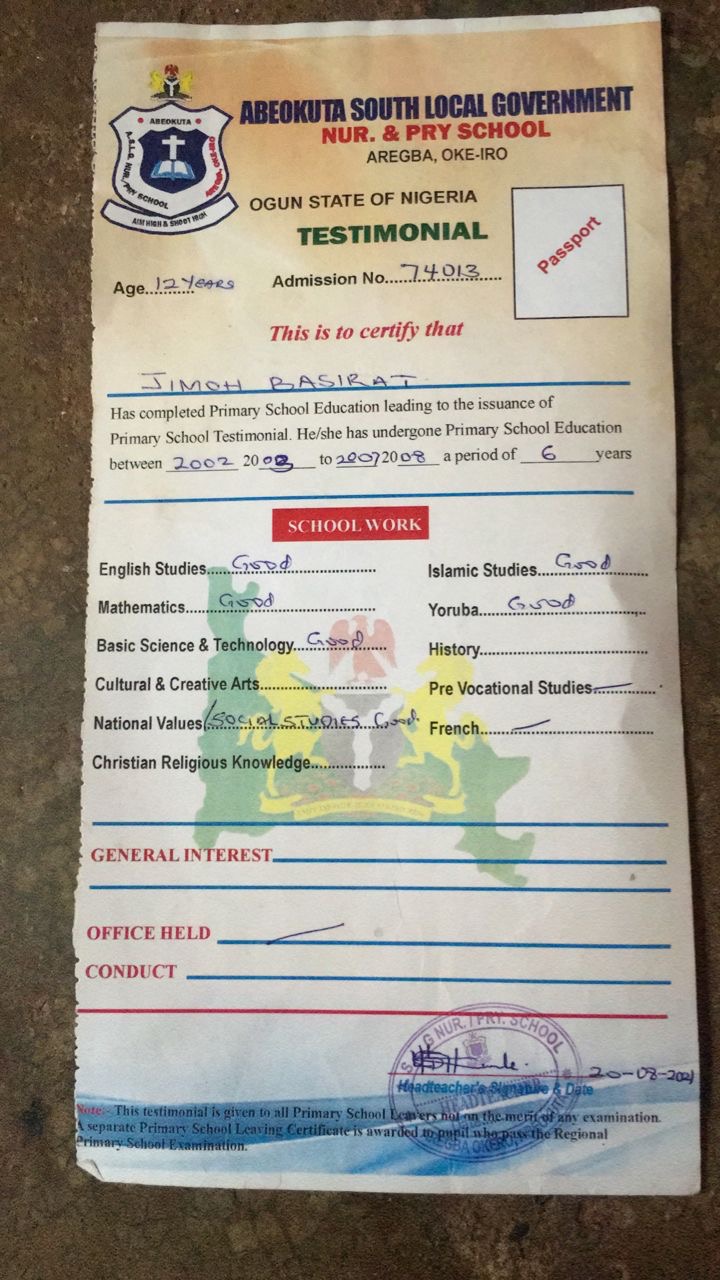 ABEOKUTA
A.S.L.G. NUR./PRY SCHOOL
AREGBA, OKE-IRO
AIM HIGH & SHOOT HIGH
ABEOKUTA SOUTH LOCAL GOVERNMENT
NUR. & PRY SCHOOL
AREGBA, OKE-IRO
OGUN STATE OF NIGERIA
TESTIMONIAL
Passport
Age..12 YEARS Admission No....74013......
This is to certify that
JIMOH BASIRAT
Has completed Primary School Education leading to the issuance of
Primary School Testimonial. He/she has undergone Primary School Education
between 2002 2003 to 2007 2008 a period of 6 years
SCHOOL WORK
English Studies.....Good..................
Islamic Studies....Good........
Mathematics.......Good....................
Yoruba......Good..............
Basic Science & Technology...Good.....
History..................................
Cultural & Creative Arts.........................
Pre Vocational Studies...............
National Values/SOCIAL STUDIES Good.
French..................................
Christian Religious Knowledge...............
GENERAL INTEREST
OFFICE HELD
CONDUCT
NUR. / PRY. SCHOOL
20-08-2021
Headteacher's Signature & Date
Note:- This testimonial is given to all Primary School Leavers not on the merit of any examination.
A separate Primary School Leaving Certificate is awarded to pupil who pass the Regional
Primary School Examination.